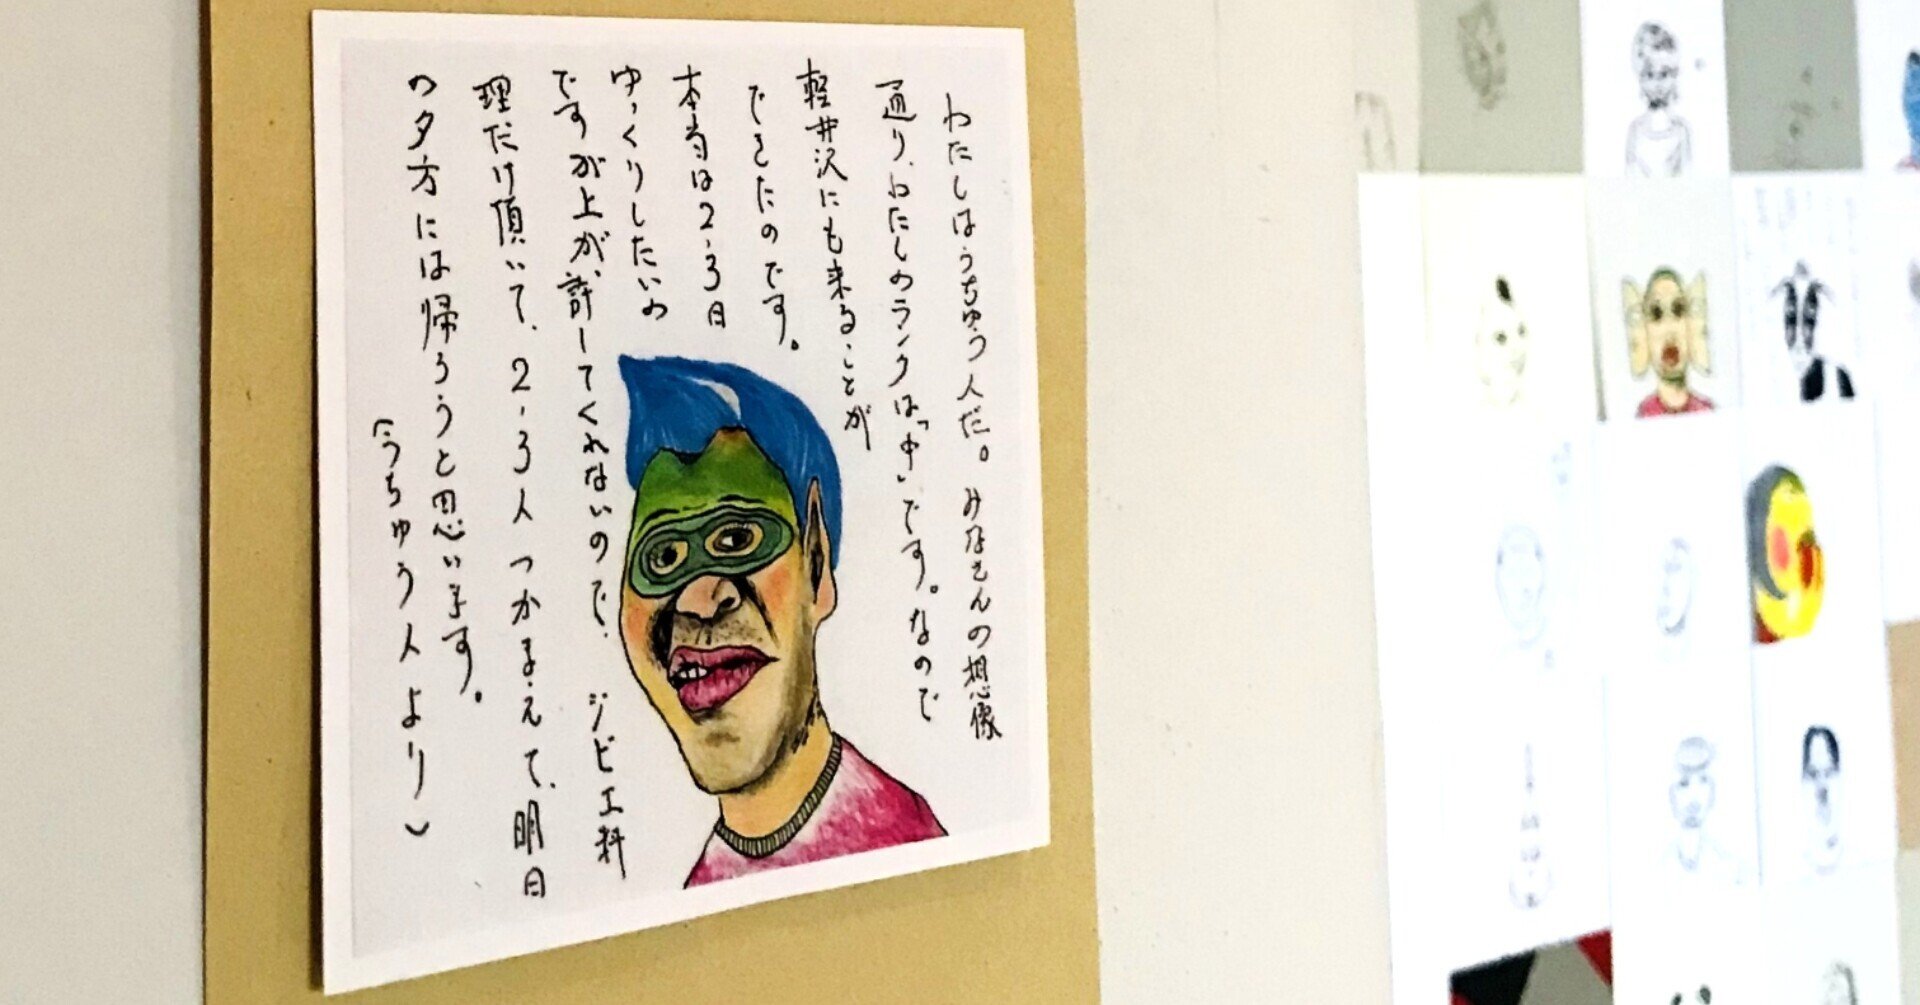 わたしはうちゅう人だ。みなさんの想像
通り、わたしのランクは「中」です。なので
軽井沢にも来ることが
できたのです。
本当は2、3日
ゆっくりしたいの
ですが上が、許してくれないので、ジビエ料
理だけ頂いて、2、3人つかまえて、明日
の夕方には帰ろうと思います。
(うちゅう人より)